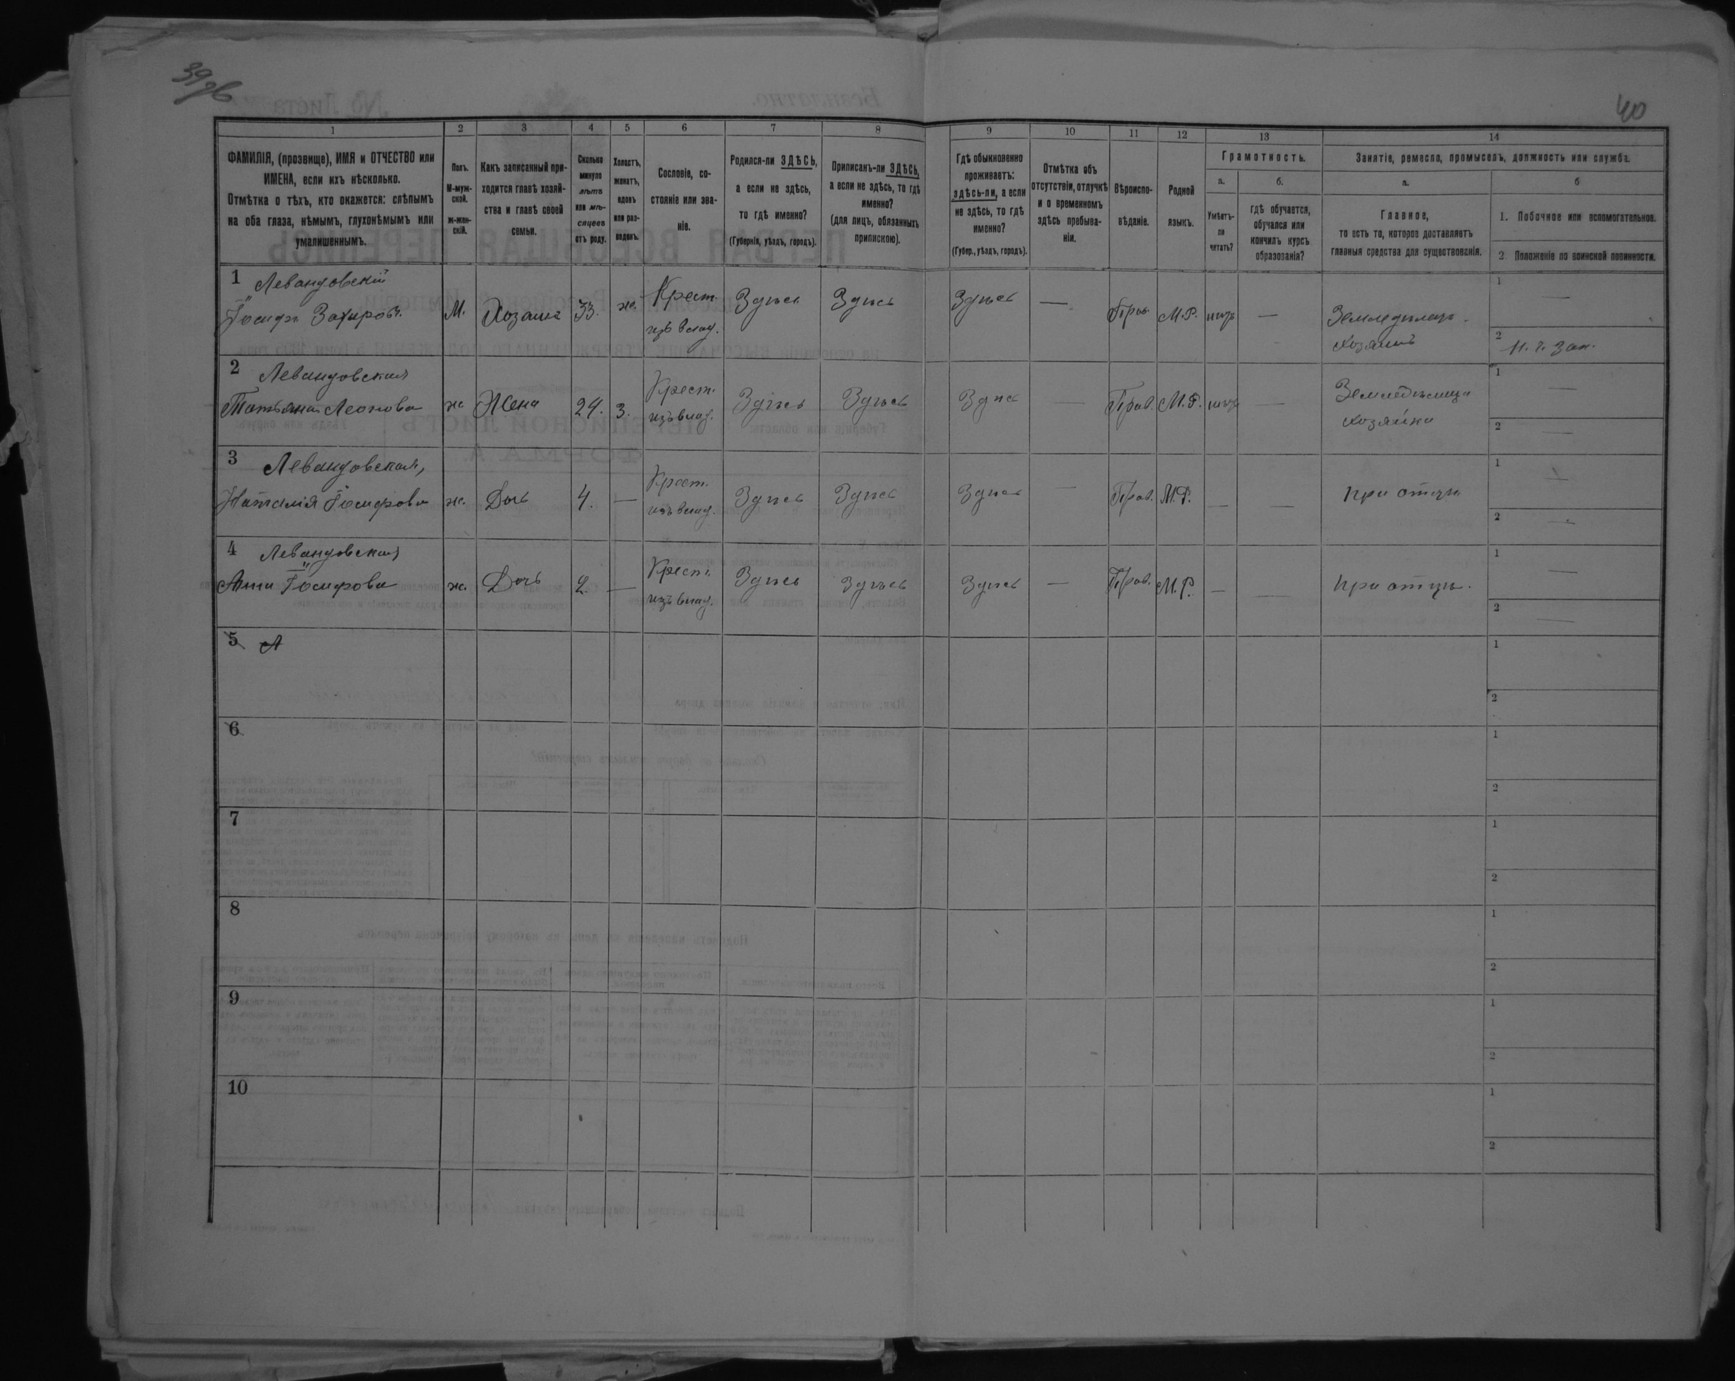 39об
40
1
2
3
4
5
6
7
8
9
10
11
12
13
14
ФАМИЛІЯ, (прозвище), ИМЯ и ОТЧЕСТВО или
ИМЕНА, если ихъ нѣсколько.
Отмѣтка о тѣхъ, кто окажется: слѣпымъ
на оба глаза, нѣмымъ, глухонѣмымъ или
умалишеннымъ.
Полъ.
М-муж-
ской.
ж-жен-
скій.
Какъ записанный при-
ходится главѣ хозяй-
ства и главѣ своей
семьи.
Сколько
минуло
лѣтъ
или мѣ-
сяцевъ
отъ роду.
Холостъ,
женатъ,
вдовъ
или раз-
веденъ.
Сословіе, со-
стояніе или зва-
ніе.
Родился-ли ЗДѢСЬ,
а если не здѣсь,
то гдѣ именно?
(Губернія, уѣздъ, городъ).
Приписанъ-ли ЗДѢСЬ,
а если не здѣсь, то гдѣ
именно?
(для лицъ, обязанныхъ
припискою).
Гдѣ обыкновенно
проживаетъ:
здѣсь-ли, а если
не здѣсь, то гдѣ
именно?
(Губер., уѣздъ, городъ).
Отмѣтка объ
отсутствіи, отлучкѣ
и о временномъ
здѣсь пребыва-
ніи.
Вѣроиспо-
вѣданіе.
Родной
языкъ.
Грамотность.
а.
Умѣетъ-
ли
читать?
б.
гдѣ обучается,
обучался или
кончилъ курсъ
образованія?
Занятіе, ремесло, промыселъ, должность или служба.
а.
Главное,
то есть то, которое доставляетъ
главныя средства для существованія.
б
1. Побочное или вспомогательное.
2. Положеніе по воинской повинности.
1 Левандовскій
Іосифъ Захаровъ М. Хозяинъ 33. ж. Крест. изъ влад. Здѣсь Здѣсь Здѣсь — Прав М.Р. нѣтъ — Земледѣлецъ хозяинъ 1 — 2
2 Левандовская
Татьяна Леонова ж Жена 24. з. Крест. изъ влад. Здѣсь Здѣсь Здѣсь — Прав. М.Р. нѣтъ — хозяйка 1 — 2 —
3 Левандовская,
Наталія Іосифова ж. Дочь 4. — Крест. изъ влад. Здѣсь Здѣсь Здѣсь — Прав. М.Р. — — при отцѣ 1 — 2 —
4 Левандовская
Анна Іосифова ж. Дочь 2 — Крест. изъ влад. Здѣсь Здѣсь Здѣсь — Прав. М.Р. — — при отцѣ. 1 — 2 —
5 А 1 2
6 1 2
7 1 2
8 1 2
9 1 2
10 1 2